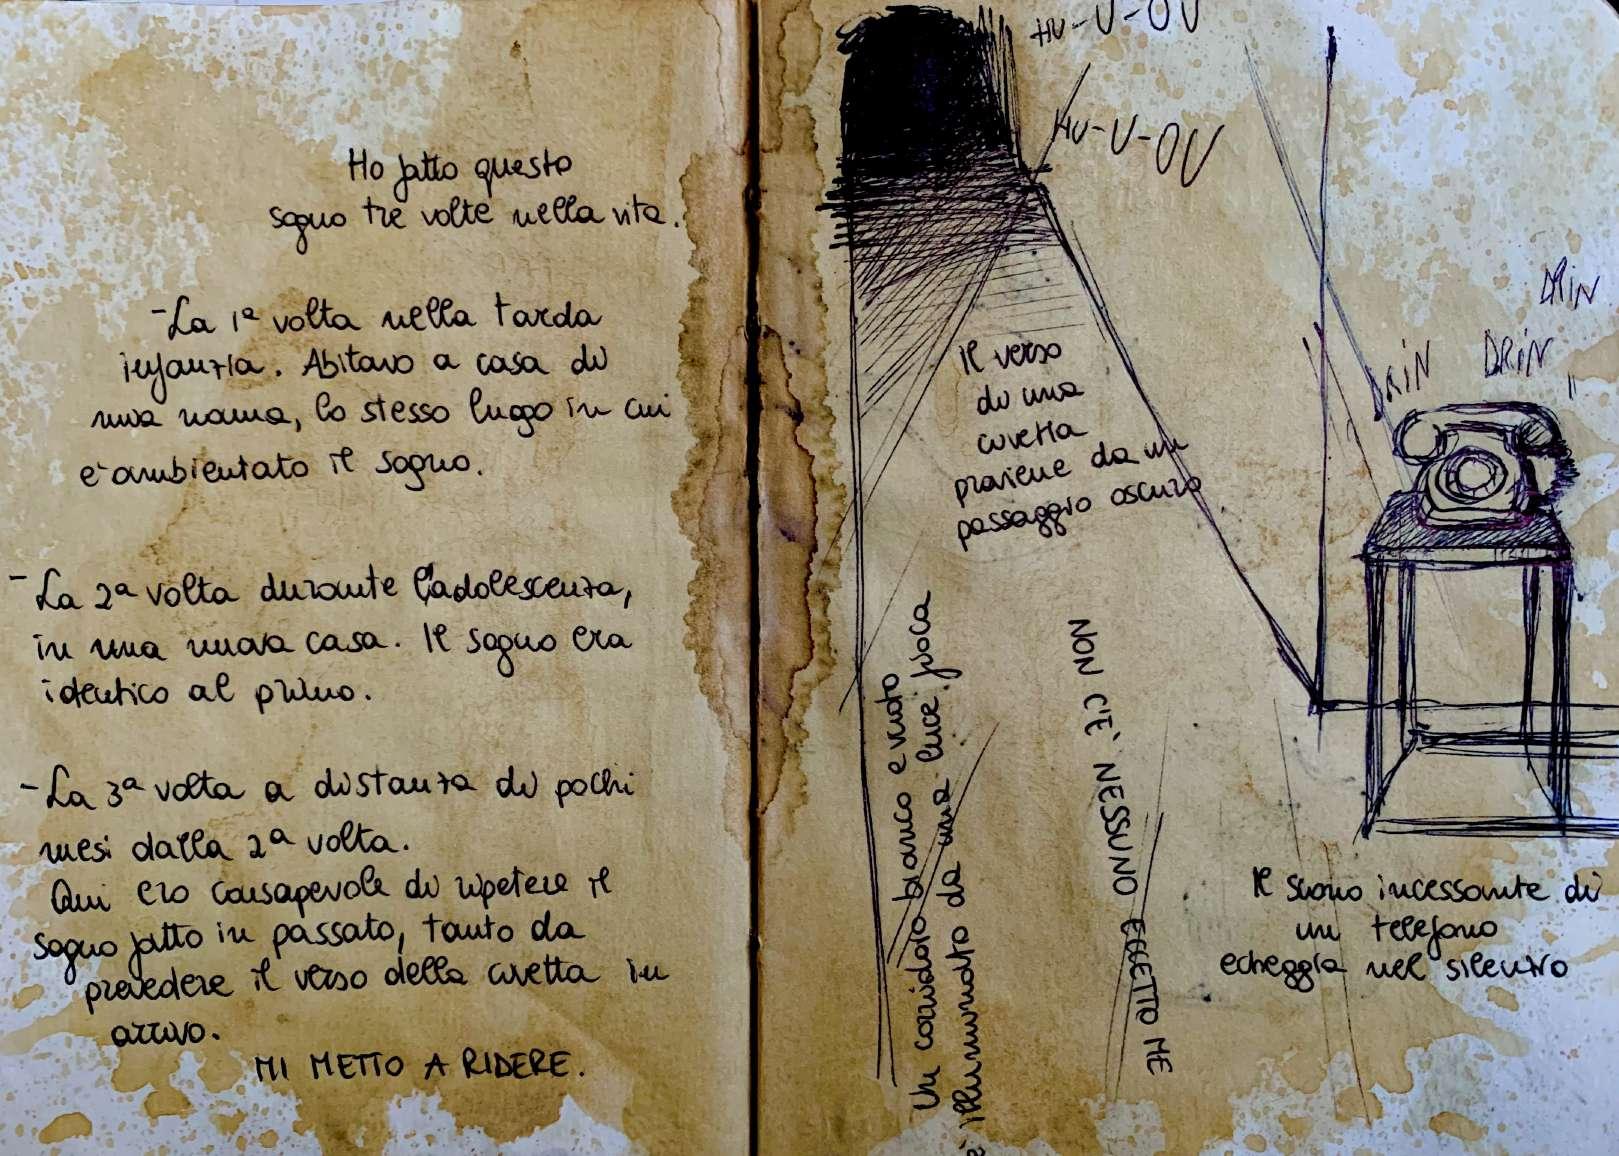 Ho fatto questo
sogno tre volte nella vita.
-La 1ª volta nella tarda
infanzia. Abitavo a casa di
mia nonna, lo stesso luogo in cui
è ambientato il sogno.
-La 2ª volta durante l'adolescenza,
in una nuova casa. Il sogno era
identico al primo.
-La 3ª volta a distanza di pochi
mesi dalla 2ª volta.
Qui ero consapevole di ripetere il
sogno fatto in passato, tanto da
prevedere il verso della civetta in
arrivo.
MI METTO A RIDERE.
HU-U-OU
HU-U-OU
DRIN
DRIN
DRIN
Il verso
di una
civetta
proviene da un
passaggio oscuro
Un corridoio bianco e vuoto
è illuminato da una luce fioca
NON C'È NESSUNO ECCETTO ME
Il suono incessante di
un telefono
echeggia nel silenzio